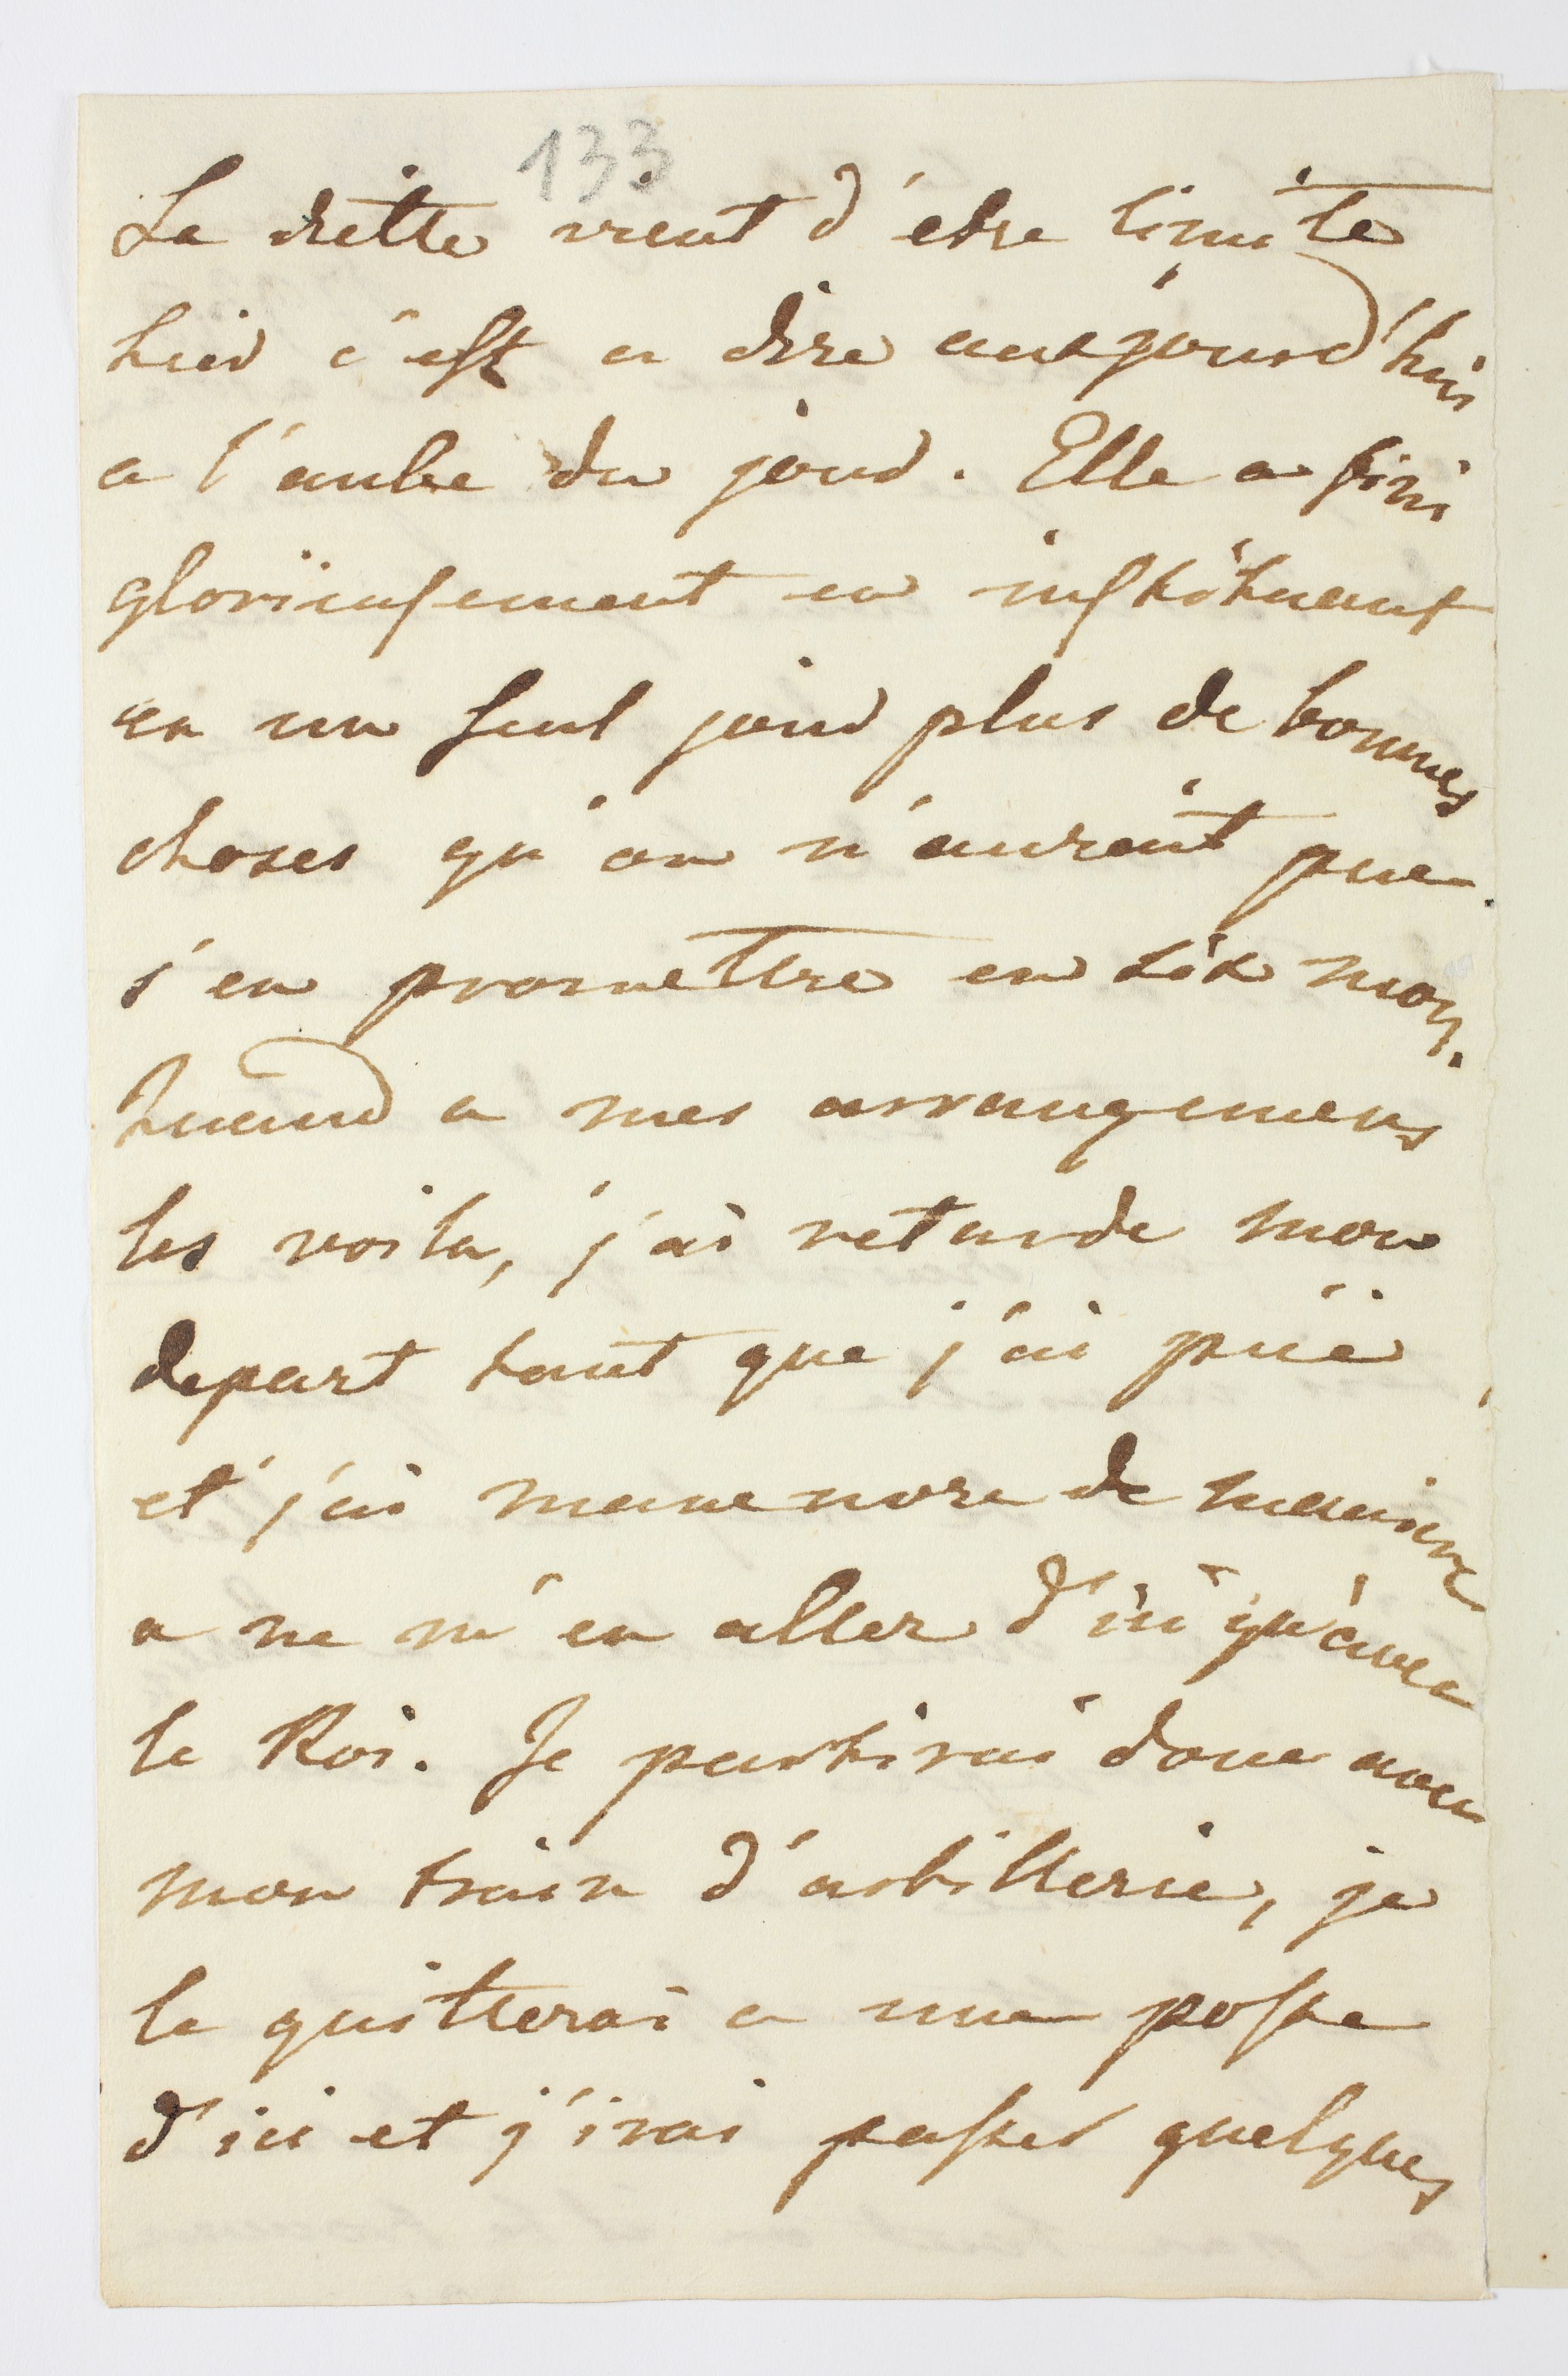 133
La diette vient d'etre limite
hier c'est a dire aujourd'hui
a l'aube du jour. Elle a fini
glorieusement en instituant
en un seul jour plus de bonnes
choses qu'on n'aurait pue
s'en promettre en six moy.
Quand a mes arrangemens
les voila, j'ai retarde mon
depart tant que j'ai pué,
et j'ai manœuvre de maniere
a ne m'en aller d'ici qu'avec
le Roi. Je partirai donc avec
mon train d'artillerie, je
le quitterai a une poste
d'ici et j'irai passer quelques